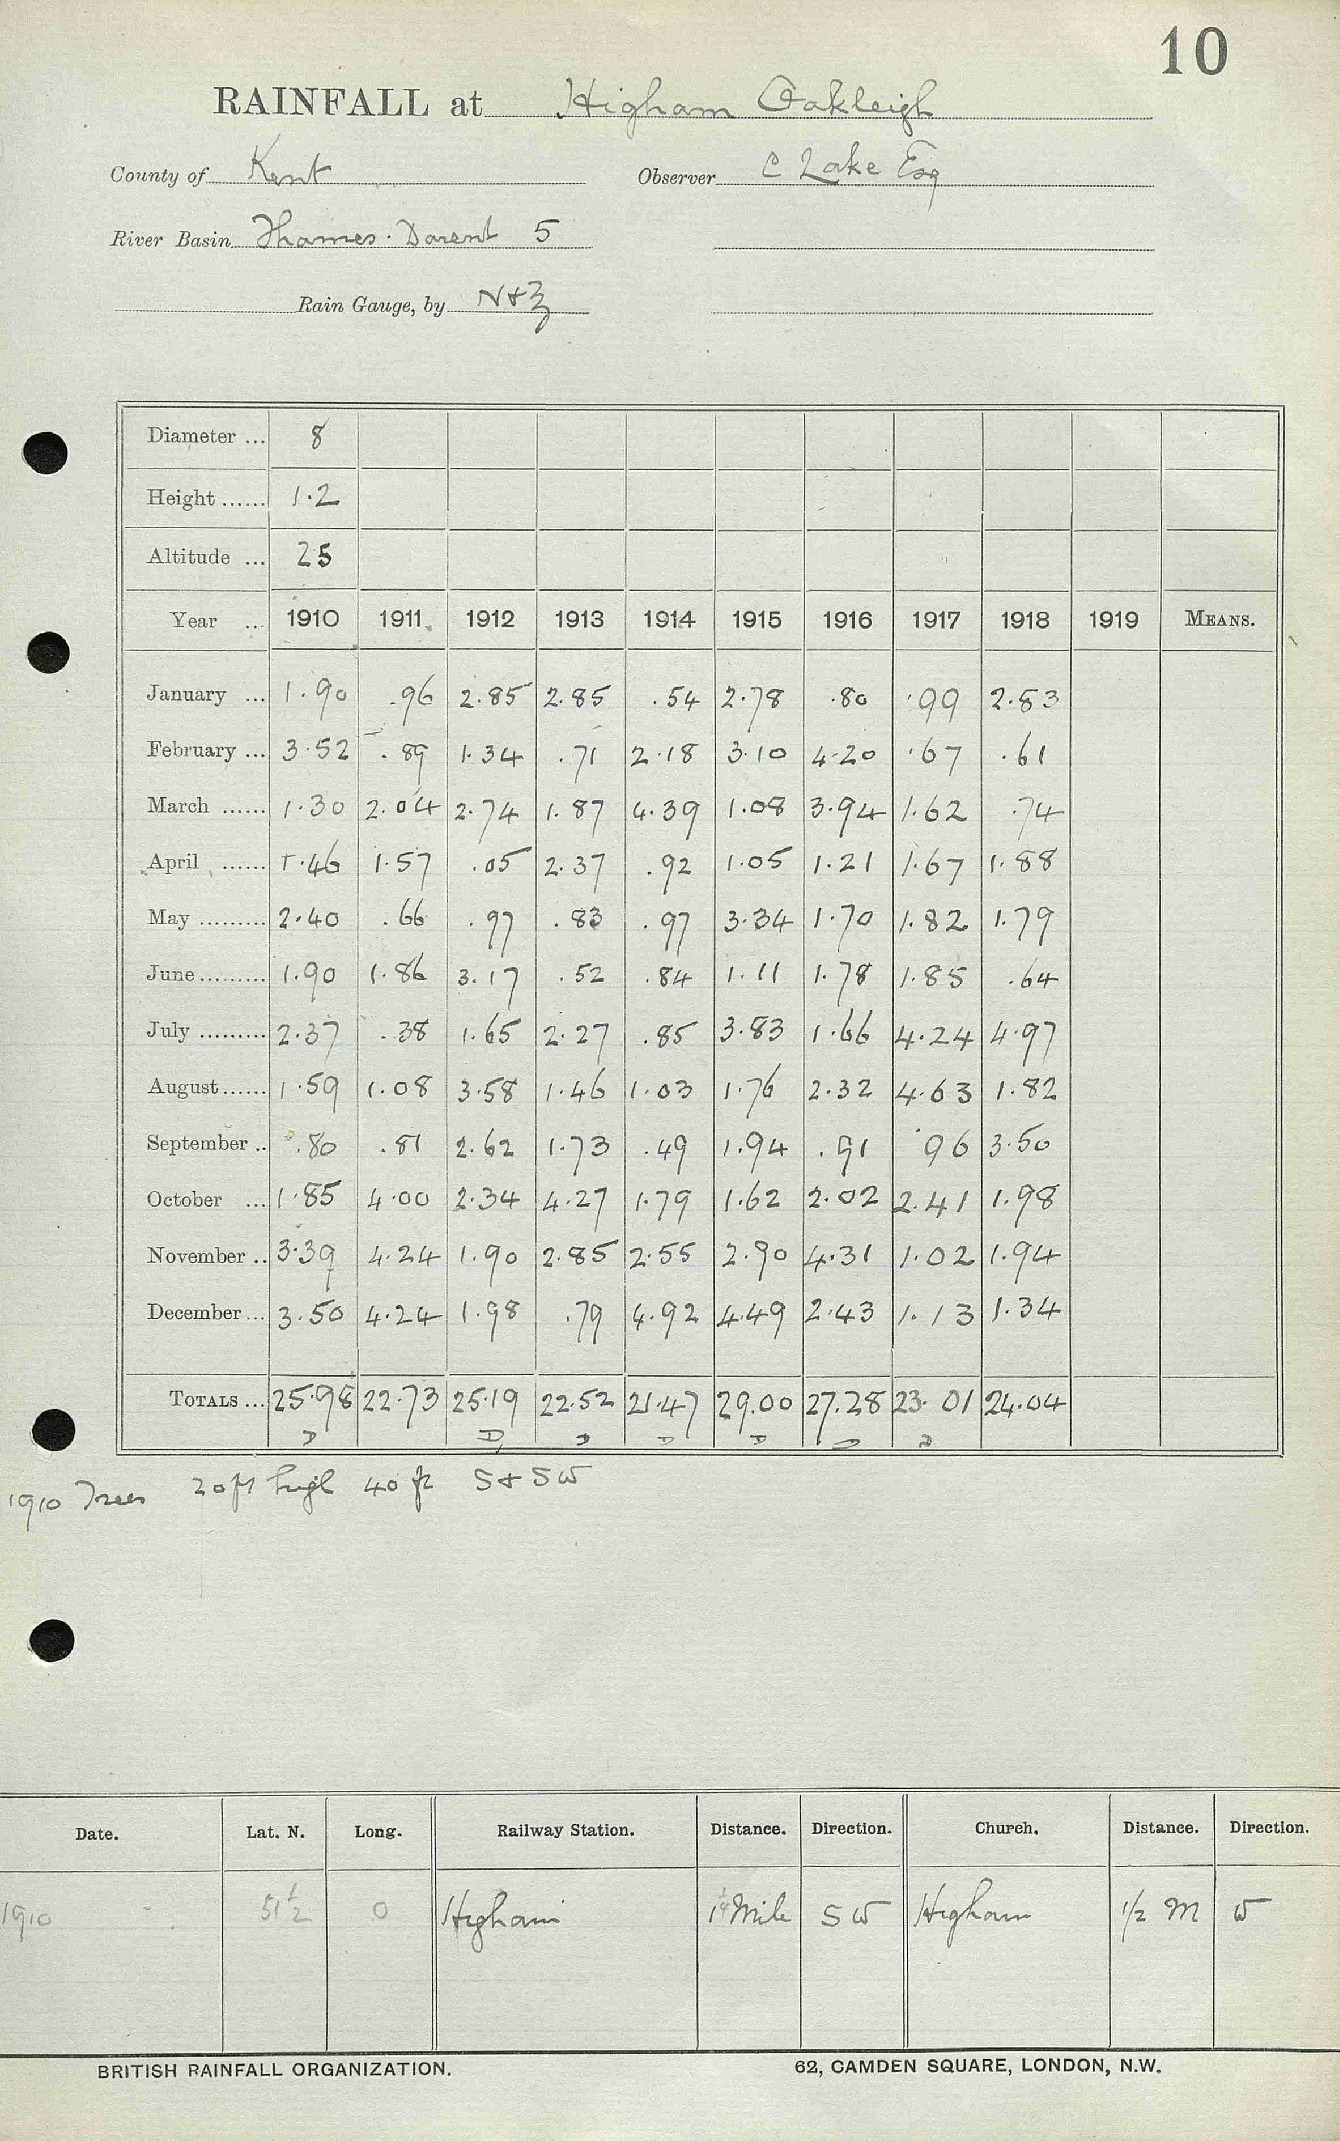 10
RAINFALL at Higham Oakleigh
County of Kent Observer C Lake Esq
River Basin Thames · Darent 5
Rain Gauge, by N+Z
Diameter ... 8
Height ...... 1.2
Altitude ... 25
Year ... 1910 1911 1912 1913 1914 1915 1916 1917 1918 1919 MEANS.
January ... 1.90 .96 2.85 2.85 .54 2.78 .80 .99 2.83
February ... 3.52 .89 1.34 .71 2.18 3.10 4.20 .67 .61
March ...... 1.30 2.04 2.74 1.87 4.39 1.08 3.94 1.62 .74
April ...... 1.46 1.57 .05 2.37 .92 1.05 1.21 1.67 1.88
May ......... 2.40 .66 .97 .83 .97 3.34 1.70 1.82 1.79
June ......... 1.90 1.86 3.17 .52 .84 1.11 1.78 1.85 .64
July ......... 2.37 .38 1.65 2.27 .85 3.83 1.66 4.24 4.97
August ...... 1.59 1.08 3.58 1.46 1.03 1.76 2.32 4.63 1.82
September .. .80 .81 2.62 1.73 .49 1.94 .91 .96 3.50
October ... 1.85 4.00 2.34 4.27 1.79 1.62 2.02 2.41 1.98
November .. 3.39 4.24 1.90 2.85 2.55 2.90 4.31 1.02 1.94
December ... 3.50 4.24 1.98 .79 4.92 4.49 2.43 1.13 1.34
TOTALS ... 25.98 22.73 25.19 22.52 21.47 29.00 27.28 23.01 24.04
D D D D D D D
1910 Trees 20 ft high 40 ft S + SW
Date. Lat. N. Long. Railway Station. Distance. Direction. Church. Distance. Direction.
1910 51½ 0 Higham 1¼ Mile SW Higham ½ M W
BRITISH RAINFALL ORGANIZATION. 62, CAMDEN SQUARE, LONDON, N.W.